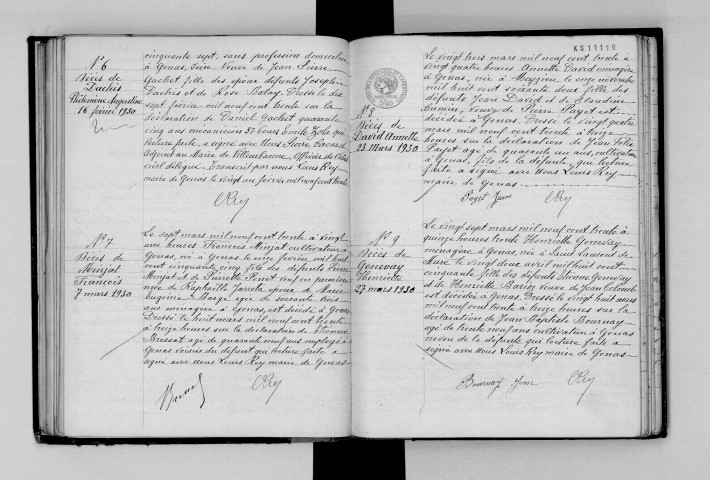 N° 6
Décès de
Dachis
Philomène Augustine
16 février 1930
cinquante sept, sans profession domiciliée
à Genas, Isère. Veuve de Jean Pierre
Gachet fille des époux défunts Joseph
Dachis et de Rose Dressé le dix
sept février mil neuf cent trente sur la
déclaration de Daniel Gachet quarante
cinq ans mécanicien 57 cours Emile Zola qui
lecture faite, a signé avec Nous Pierre
adjoint au Maire de Villeurbanne, Officier de l'état
civil délégué. Transcrit par nous Louis Rey
maire de Genas le vingt un février mil neuf cent trente
LRey
N° 7
Décès de
Minjat
François
7 mars 1930
Le sept mars mil neuf cent trente à vingt
une heures François Minjat cultivateur à
Genas, né à Genas le onze février mil huit
cent cinquante cinq fils des défunts Pierre
Minjat et de Pierrette veuf en première
noce de Raphaëlle époux de Marie
Eugénie Barge agée de soixante trois
ans ménagère à Genas, est décédé à Genas
Dressé le huit mars mil neuf cent trente
à treize heures sur la déclaration de Etienne
Bressat agé de quarante neuf ans employé à
Genas voisin du défunt qui lecture faite a
signé avec Nous Louis Rey maire de Genas
LRey
KS11118
N° 8
Décès de
David Annette
23 Mars 1930
Le vingt trois mars mil neuf cent trente à
vingt quatre heures Annette David ménagère
à Genas, née à Meyzieu le onze novembre
mil huit cent soixante deux fille des
défunts Jean David et de Claudine
veuve de Pierre Payet est
décédée à Genas. Dressé le vingt quatre
mars mil neuf cent trente à treize
heures sur la déclaration de Jean
Payet agé de quarante un ans, cultivateur
à Genas, fils de la défunte, qui lecture
faite a signé avec Nous Louis Rey
maire de Genas
Payet Jean LRey
N° 9
Décès de
Genevay
Henriette
27 mars 1930
Le vingt sept mars mil neuf cent trente à
quinze heures trente Henriette Genevay
ménagère à Genas, née à Saint Laurent de
Mure le vingt deux avril mil huit cent
cinquante fille des défunts Etienne Genevay
et de Henriette veuve de Jean
est décédée à Genas. Dressé le vingt huit mars
mil neuf cent trente à treize heures sur la
déclaration de Jean Baptiste Bournay
agé de trente neuf ans cultivateur à Genas
neveu de la défunte qui lecture faite a
signé avec Nous Louis Rey maire de Genas
Bournay Jean LRey